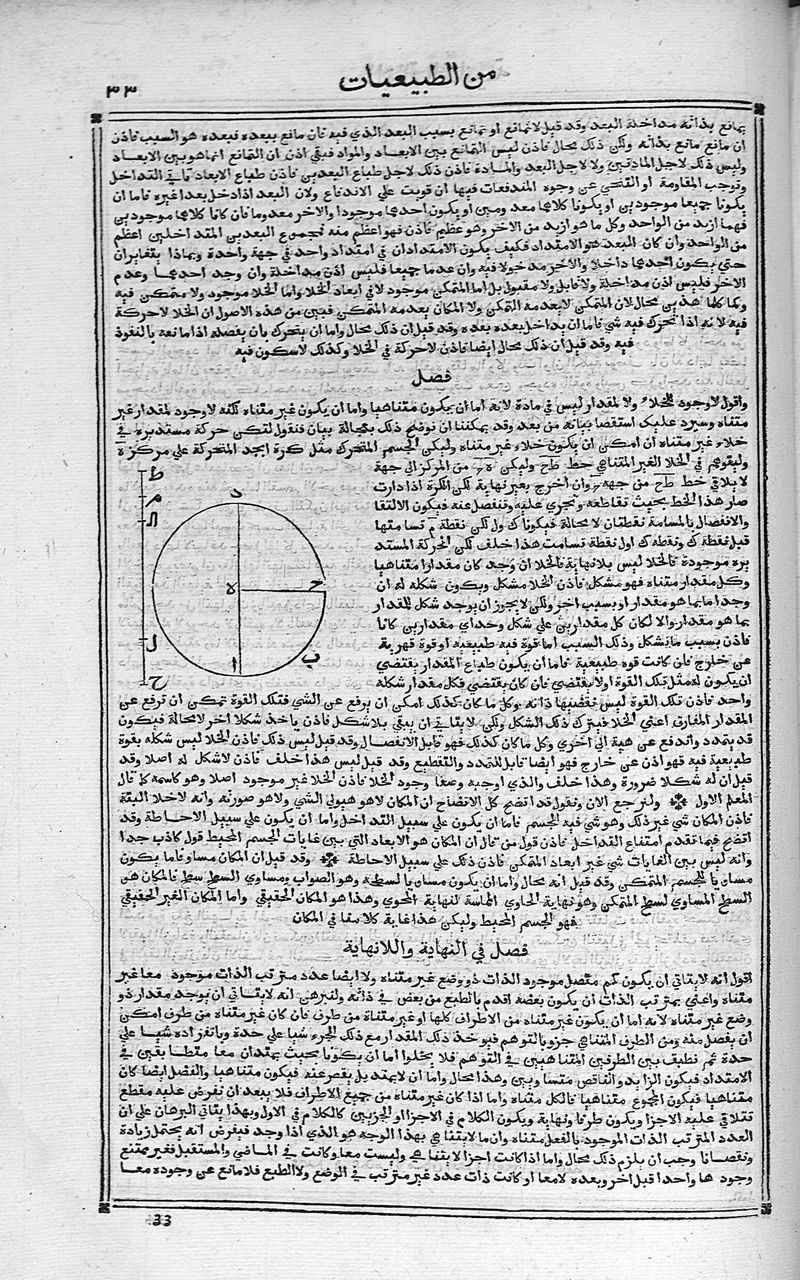 من الطبيعيات
٣٣
يمانع بذاته مداخلة البعد وقد قيل لا تمانع او تمانع بسبب البعد الذي فيه فان مانع ببعده فبعده هو السبب فاذن
ان مانع مانع بذاته ولكن ذلك محال فاذن ليس التمانع بين الابعاد والمواد فبقي اذن ان التمانع انما هو بين الابعاد
وليس ذلك لاجل المادتين ولا لاجل البعد والمادة فاذن ذلك لاجل طباع البعدين فاذن طباع الابعاد تابي التداخل
وتوجب المقاومة او التنحي عن وجوه المندفعات فيها ان قويت علي الاندفاع ولان البعد اذا دخل بعدا غيره فاما ان
يكونا جميعا موجودين او يكونا كلاهما معدومين او يكون احدهما موجودا والاخر معدوما فان كانا كلاهما موجودين
فهما ازيد من الواحد وكل ما هو ازيد من الاخر وهو عظيم فاذن فهو اعظم منه فمجموع البعدين المتداخلين اعظم
من الواحد وان كان البعد هو الامتداد فكيف يكون الامتدادان في امتداد واحد في جهة واحدة وبماذا يتغايران
حتي يكون احدهما داخلا والاخر مدخولا فيه وان عدما جميعا فليس اذن مداخلة وان وجد احدهما وعدم
الاخر فليس اذن مداخلة ولا قابل ولا مقبول بل اما المتمكن موجود لا في ابعاد الخلا واما الخلا موجود ولا متمكن فيه
وكما كلما هذين محال لان المتمكن لا يعدمه التمكن ولا المكان يعدمه المتمكن فبين من هذه الاصول ان الخلا لا حركة
فيه لانه اذا تحرك فيه شي فاما ان يداخل بعده بعده وقد قيل ان ذلك محال واما ان يتحرك بان يفصله اذا مانعه بالنفوذ
فيه وقد قيل ان ذلك محال ايضا فاذن لا حركة في الخلا وكذلك لا سكون فيه
فصل
واقول لا وجود للخلاء ولا لمقدار ليس في مادة لانه اما ان يكون متناهيا واما ان يكون غير متناه لكنه لا وجود لمقدار غير
متناه وسيرد عليك استقصا بيانه من بعد وقد يمكننا ان نوضح ذلك بعجالة بيان فنقول لتكن حركة مستديرة في
خلاء غير متناه ان امكن ان يكون خلاء غير متناه وليكن الجسم المتحرك مثل كرة ابجد المتحركة علي مركز ه
وليتوهم في الخلا الغير المتناهي خط طح وليكن ه ج من المركز الي جهة
لا يلاقي خط طح من جهة ج وان اخرج بغير نهاية لكن الكرة اذا دارت
صار هذا الخط بحيث تقاطعه وتجري عليه وتنفصل عنه فيكون الالتقا
والانفصال بالمسامة نقطتان لا محالة فيكونا ك ول لكن نقطة م تسامتها
قبل نقطة ك ونقطة ك اول نقطة تسامت هذا خلف لكن الحركة المستد
يره موجودة فالخلا ليس بلا نهاية فالخلا ان وجد كان مقدارا متناهيا
وكل مقدار متناه فهو مشكل فاذن الخلا مشكل ويكون شكله له ان
وجد اما بما هو مقدار او بسبب اخر ولكن لا يجوز ان يوجد شكل للمقدار
بما هو مقدار والا لكان كل مقدارين علي شكل وحد اي مقدارين كانا
فاذن بسبب ما يتشكل وذلك السبب اما قوة فيه طبيعيه او قوة قهرية
عن خارج فان كانت قوه طبيعية فاما ان يكون طباع المقدار يقتضي
ان يكون له مثل تلك القوة اولا يقتضي فان كان يقتضي فكل مقدار شكله
ط
م
ك
د
ه
ج
ل
ا
ب
ح
واحد فاذن تلك القوة ليس تقتضيها ذاته وكل ما كان كذلك امكن ان يرفع عن الشي فتلك القوة تمكن ان ترفع عن
المقدار المفارق اعني الخلا فيترك ذلك الشكل ولكن لا يتاتي ان يبقي بلا شكل فاذن ياخذ شكلا اخر لا محالة فيكون
قد يتمدد واندفع عن هية الي اخري وكل ما كان كذلك فهو قابل الانفصال وقد قيل ليس ذلك فاذن الخلا ليس شكله بقوة
طبيعية فيه فهو اذن عن خارج فهو ايضا قابل للتمدد والتقطيع وقد قيل ليس هذا خلف فاذن لا شكل له اصلا وقد
قيل ان له شكلا ضرورة وهذا خلف والذي اوجبه وضعنا وجود الخلا فاذن الخلا غير موجود اصلا وهو كاسمه كما قال
المعلم الاول ولنرجع الان ونقول قد اتضح كل الاتضاح ان المكان لا هو هيولي الشي ولا هو صورته وانه لا خلا البتة
فاذن المكان شي غير ذلك وهو شي فيه الجسم فاما ان يكون علي سبيل التداخل واما ان يكون علي سبيل الاحاطة وقد
اتضح فيما تقدم امتناع التداخل فاذن قول من قال ان المكان هو الابعاد التي بين غايات الجسم المحيط قول كاذب جدا
وانه ليس بين الغايات شي غير ابعاد المتمكن فاذن ذلك علي سبيل الاحاطة وقد قيل ان المكان مساو فاما يكون
مساويا للجسم المتمكن وقد قيل انه محال واما ان يكون مساويا لسطحه وهو الصواب ومساوي السطح سطح فالمكان هو
السطح المساوي لسطح المتمكن وهو نهاية الحاوي المماسة لنهاية المحوي وهذا هو المكان الحقيقي واما المكان الغير الحقيقي
فهو الجسم المحيط وليكن هذا غاية كلامنا في المكان
فصل في النهاية واللانهاية
اقول انه لا يتاتي ان يكون كم متصل موجود الذات ذو وضع غير متناه ولا ايضا عدد مترتب الذات موجود معا غير
متناه واعني بمترتب الذات ان يكون بعضه اقدم بالطبع من بعض في ذاته ولنبرهن انه لا يتاتي ان يوجد مقدار ذو
وضع غير متناه لانه اما ان يكون غير متناه من الاطراف كلها او غير متناة من طرف فان كان غير متناه من طرف امكن
ان يفصل منه ومن الطرف المتناهي جزو بالتوهم فيوخذ ذلك المقدار مع ذلك الجزء شيا علي حدة وبانفراده شيا علي
حدة ثم نطبق بين الطرفين المتناهيين في التوهم فلا يخلوا اما ان يكونا بحيث يمتدان معا متطابقين في
الامتداد فيكون الزايد والناقص متساويين وهذا محال واما ان لا يمتد بل يقصر عنه فيكون متناهيا والفضل ايضا كان
متناهيا فيكون المجموع متناهيا فالكل متناه واما اذا كان غير متناه من جميع الاطراف فلا يبعد ان نفرض عليه مقطع
تتلاقي عليه الاجزا ويكون طرفا ونهاية ويكون الكلام في الاجزا او الجزيين كالكلام في الاول وبهذا يتاتي البرهان علي ان
العدد المترتب الذات الموجود بالفعل متناه وان ما لا يتناهي بهذا الوجه هو الذي اذا وجد فيفرض انه يحتمل زيادة
ونقصانا وجب ان يلزم ذلك محال واما اذا كانت اجزا لا يتناهي وليست معا وكانت في الماضي والمستقبل فغير ممتنع
وجودها واحدا قبل اخر وبعده لا معا او كانت ذات عدد غير مترتب في الوضع ولا الطبع فلا مانع عن وجوده معا
33